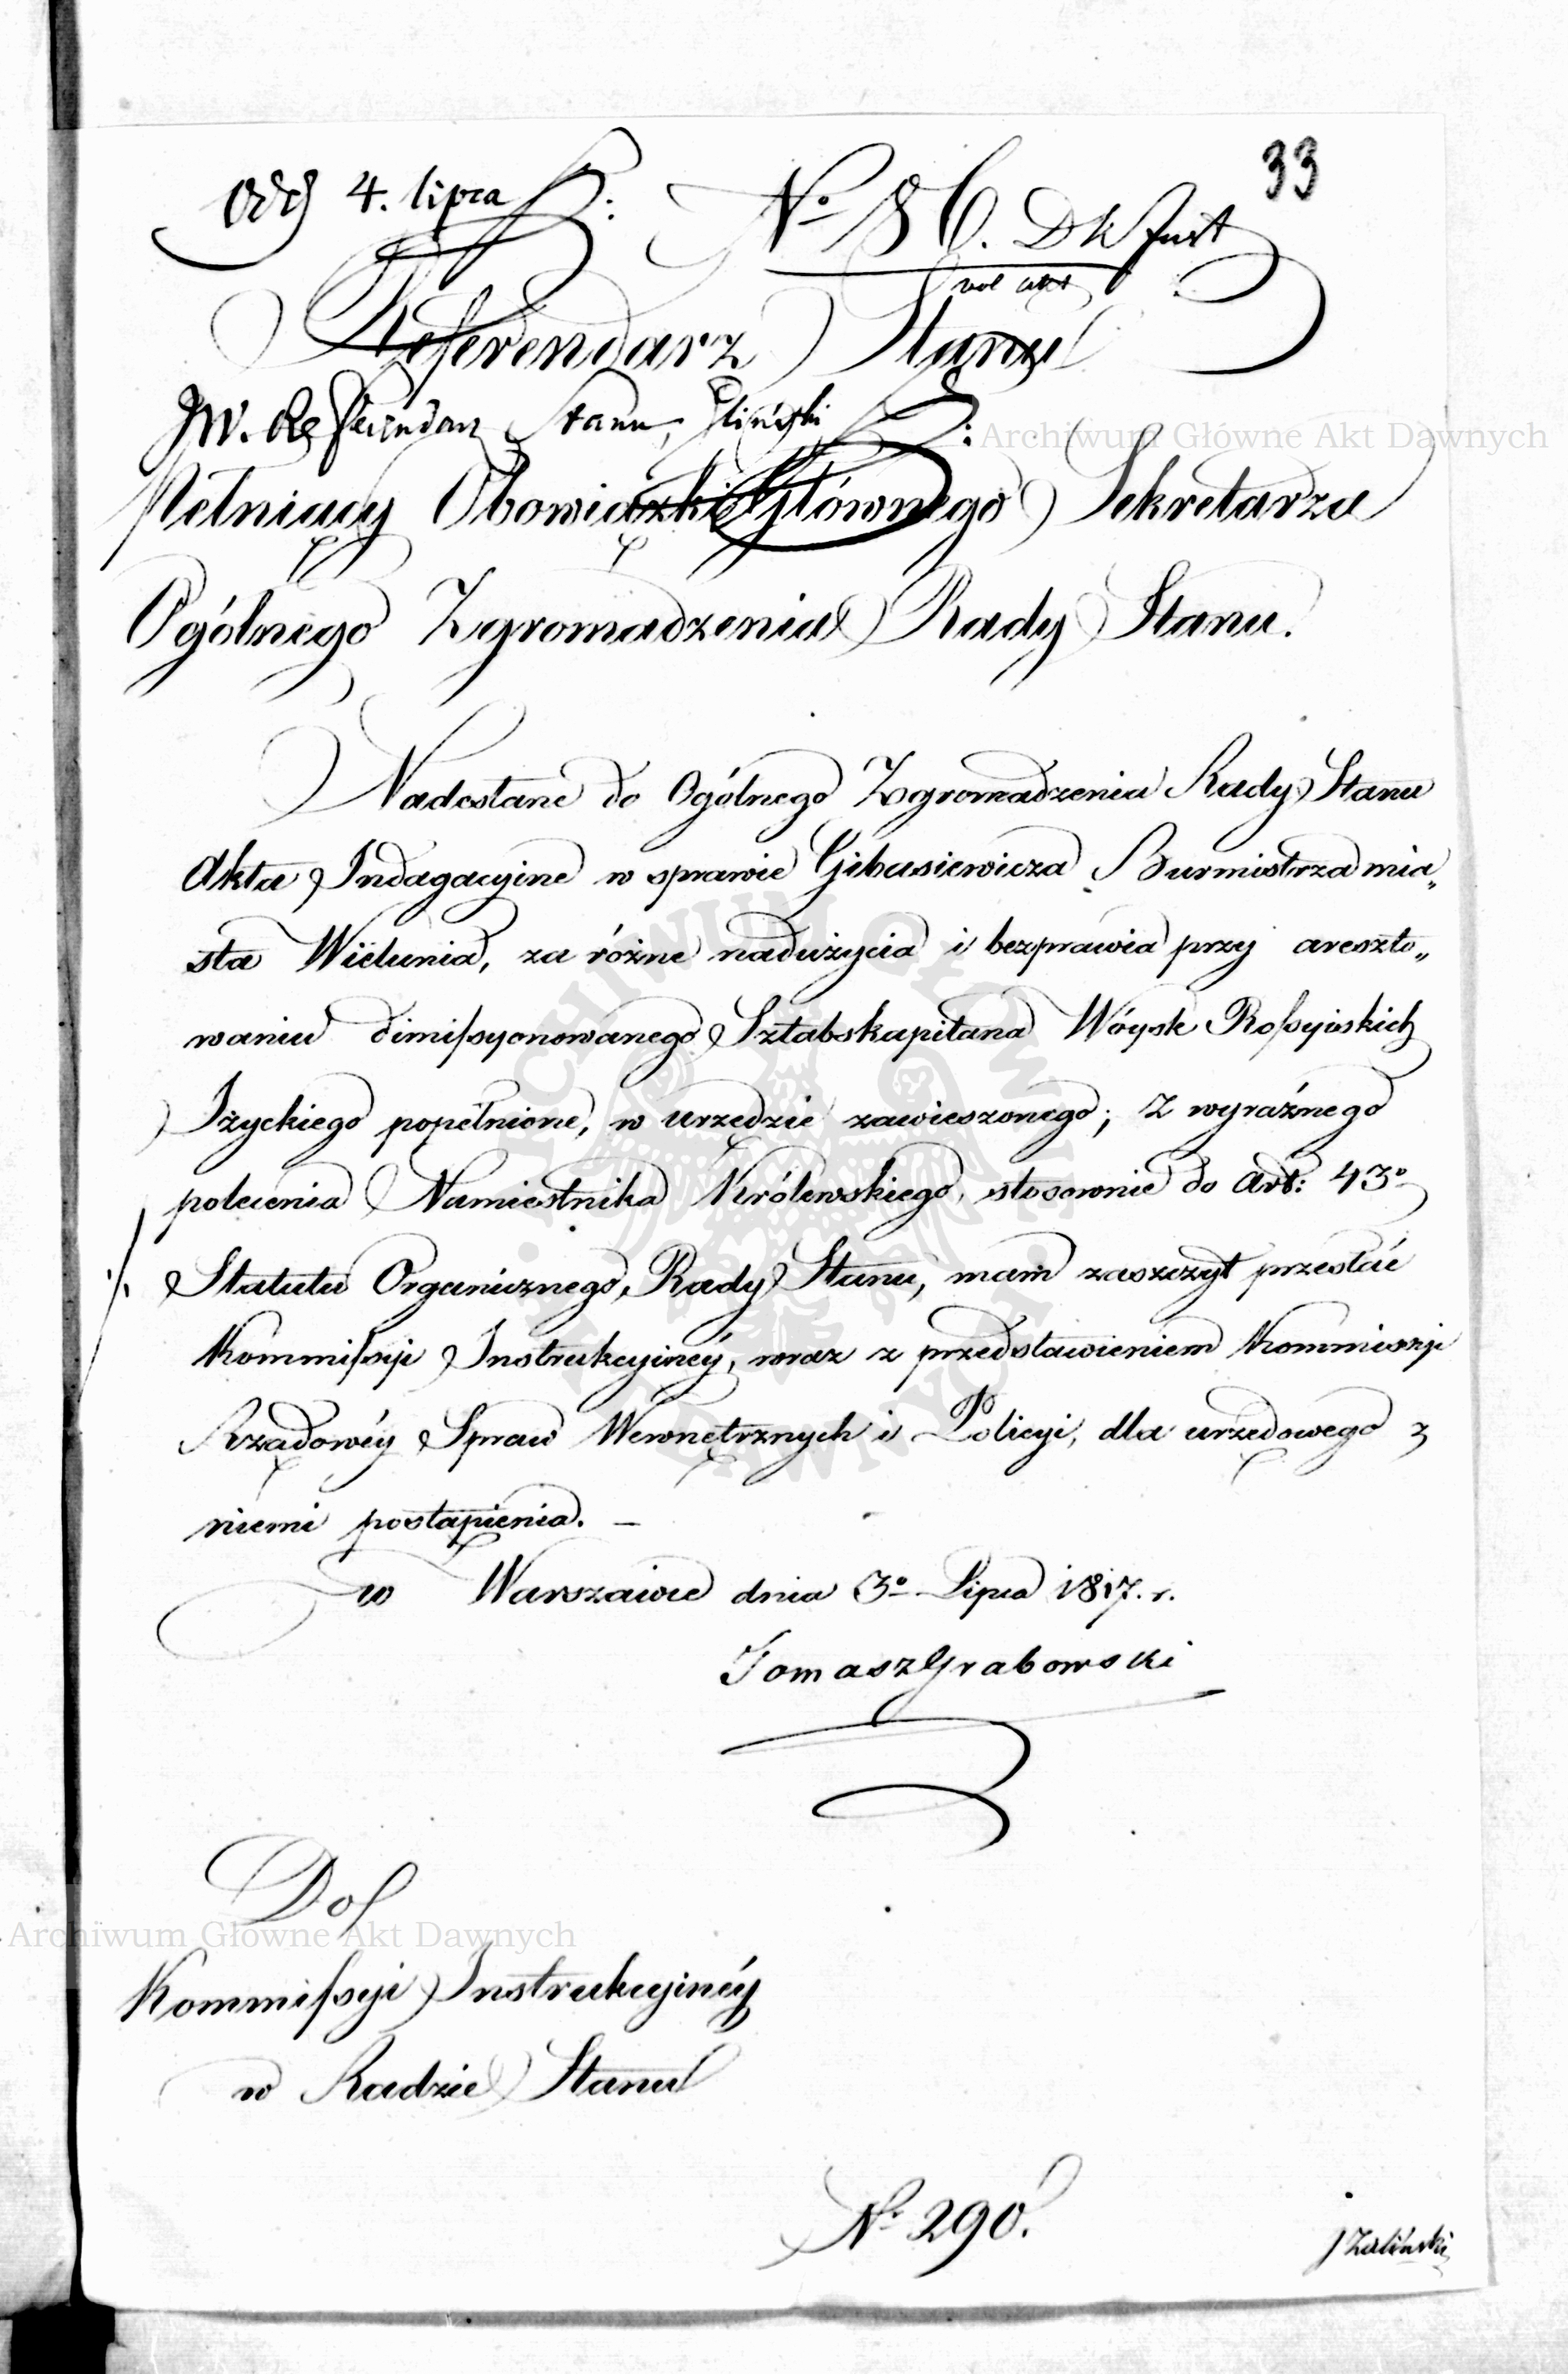 33
4. lipca
No 86. DK Inst
vol akt
Referendarz Stanu
JW. Referendarz Stanu
Pełniący Obowiązki Głównego Sekretarza
Ogólnego Zgromadzenia Rady Stanu.
Nadesłane do Ogólnego Zgromadzenia Rady Stanu
Akta Indagacyine w sprawie Gibasiewicza Burmistrza mia„
sta Wielunia, za różne nadużycia i bezprawia przy areszto„
waniu dimiſsyonowanego Sztabskapitana Wóysk Roſsyiskich
Iżyckiego popełnione, w urzędzie zawieszonego; z wyraźnego
polecenia Namiestnika Królewskiego, stosownie do Art: 43o
Statutu Organicznego, Rady Stanu, mam zaszczyt przesłać
Kommiſsyi Instrukcyinéy, wraz z przedstawieniem Kommissyi
Rządowéy Spraw Wewnętrznych i Policyi, dla urzędowego z
niemi postąpienia. —
w Warszawie dnia 3o Lipca 1817. r.
Tomasz Grabowski
Do
Kommiſsyi Instrukcyinéy
w Radzie Stanu
No 290.
J Zaliński
Archiwum Główne Akt Dawnych
Archiwum Główne Akt Dawnych
ARCHIWUM GŁÓWNE AKT DAWNYCH